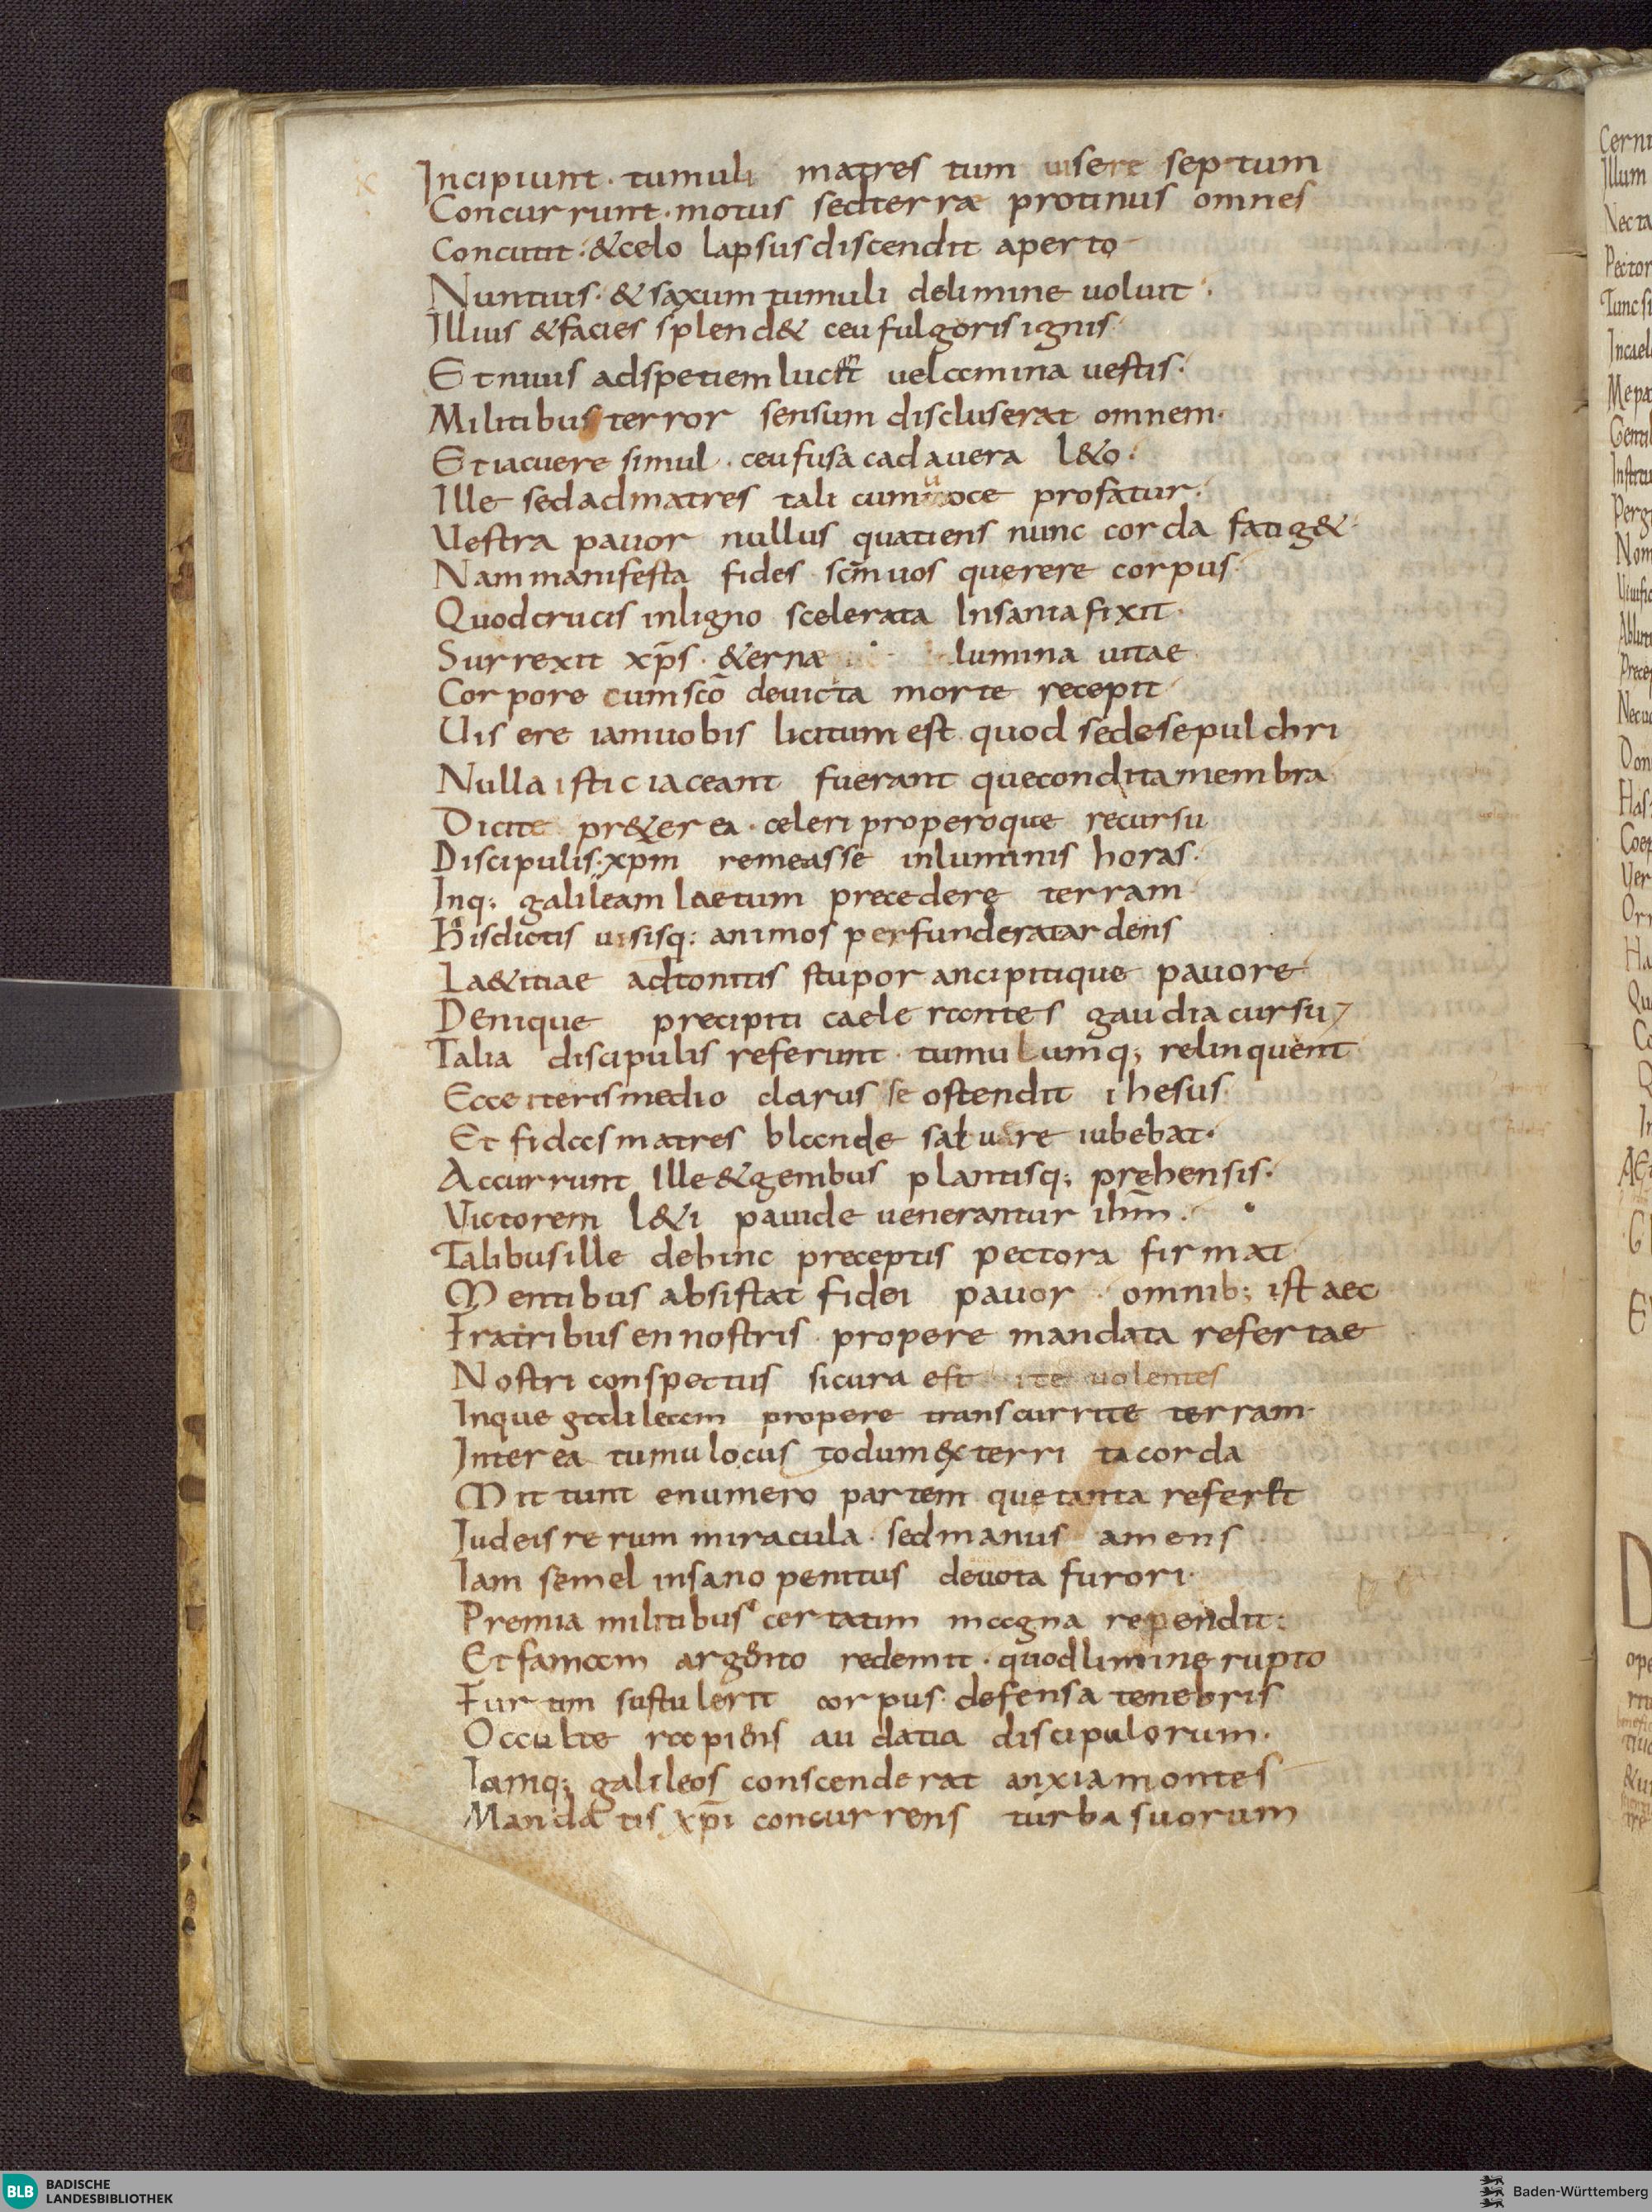 Incipiunt · tumuli matres tum uisere septum
Concurrunt · motus sedterræ protinus omnes
Concutit · &celo lapsusdiscendit aperto
Nuntius · & saxum tumuli delimine uoluit ·
Illius &facies splend& ceu fulgoris ignis
Et niuis adspetiem lucent uelamina uestis ·
Militibus terror sensum discluserat omnem ·
Et iacuere simul · ceufusa cadauera l&o ·
Ille sedadmatres tali cum uoce profatur ·
Uestra pauor nullus quatiens nunc corda fatig&
Nam manifesta fides scm̄ uos querere corpus
Quodcrucis inligno scelerata Insania fixit ·
Surrexit xp̄s · &ernæ lumina uitae
Corpore cumscō deuicta morte recepit
Uisere iamuobis licitum est quod sedesepulchri
Nulla istic iaceant fuerant queconditamembra
Dicite pr&erea · celeri properoque recursu
Discipulis · xpm̄ remeasse inluminis horas ·
Inq; galileam laetum precedere terram
Hisdictis uisisq: animos perfunderatardens
La&itiae adtonitus stupor ancipitique pauore
Denique precipiti caelerantes gaudia cursu
Talia discipulis referunt · tumulumq; relinquent
Ecce iterismedio clarus se ostendit ihesus
Et fidas matres blande saluare iubebat ·
Accurrunt Ille &genibus plantisq; prehensis ·
Victorem l&i pauide uenerantur ihm̄ ·
Talibusille dehinc preceptis pectora firmat
Mentibus absistat fidei pauor · omnib; istaec
Fratribus en nostris · propere mandata refertae
Nostri conspectus sicura est ite uolentes
Inque galileam propere transcurrite terram
Interea tumulo cus todum &x terri ta corda
Mittunt enumero partem quetanta referrent
Iudeis rerum miracula · sedmanus amens
Iam semel insano penitus deuota furori ·
Premia militibus certatim magna rependit :
Et famam argento redemit · quodlimine rupto
Furtim sustulerit corpus · defensa tenebris
Occulte rapiens audatia discipulorum ·
Iamq; galileos conscenderat anxiamontes
Mandatis xp̄i concurrens turba suorum
BLB BADISCHE
LANDESBIBLIOTHEK
Baden-Württemberg